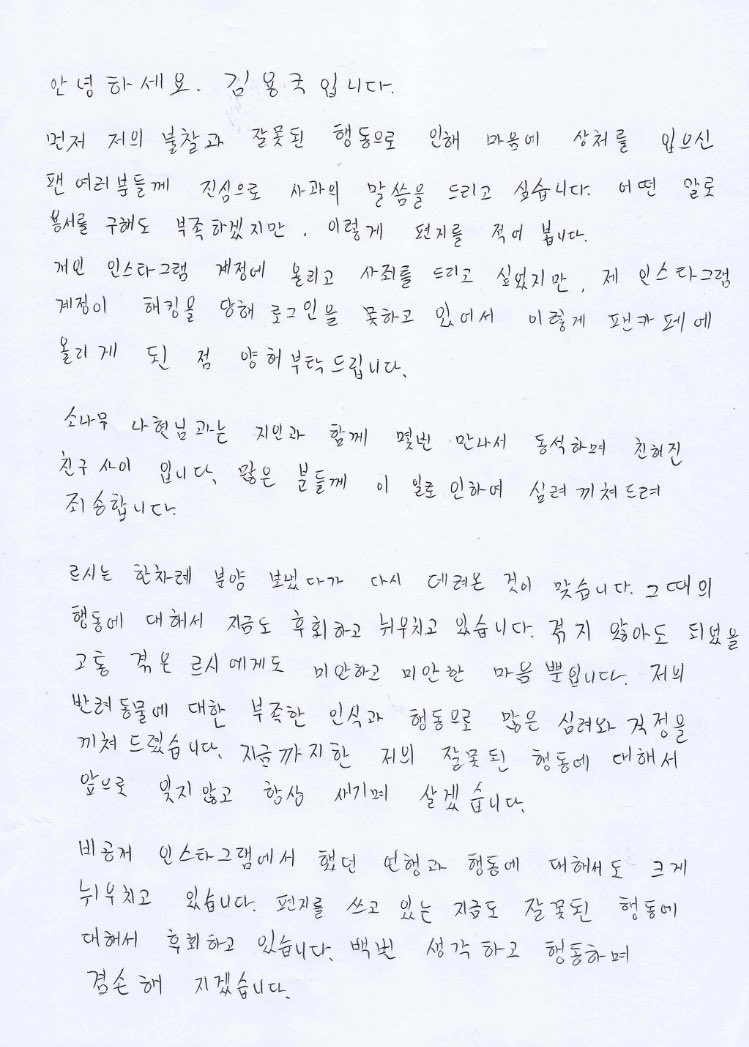 안녕하세요. 김용국입니다.
먼저 저의 불찰과 잘못된 행동으로 인해 마음에 상처를 입으신
팬 여러분들께 진심으로 사과의 말씀을 드리고 싶습니다. 어떤 말로
용서를 구해도 부족하겠지만, 이렇게 편지를 적어 봅니다.
개인 인스타그램 계정에 올리고 사죄를 드리고 싶었지만, 제 인스타그램
계정이 해킹을 당해 로그인을 못하고 있어서 이렇게 팬카페에
올리게 된 점 양허부탁드립니다.
소나무 나현님과는 지인과 함께 몇번 만나서 동석하며 친해진
친구 사이 입니다. 많은 분들께 이 일로 인하여 심려 끼쳐드려
죄송합니다.
르시는 한차례 분양 보냈다가 다시 데려온 것이 맞습니다. 그때의
행동에 대해서 지금도 후회하고 뉘우치고 있습니다. 겪지 않아도 되었을
고통 겪은 르시에게도 미안하고 미안한 마음 뿐입니다. 저의
반려동물에 대한 부족한 인식과 행동으로 많은 심려와 걱정을
끼쳐 드렸습니다. 지금까지한 저의 잘못된 행동에 대해서
앞으로 잊지않고 항상 새기며 살겠습니다.
비공개 인스타그램에서 했던 언행과 행동에 대해서도 크게
뉘우치고 있습니다. 편지를 쓰고 있는 지금도 잘못된 행동에
대해서 후회하고 있습니다. 백번 생각하고 행동하며
겸손해 지겠습니다.